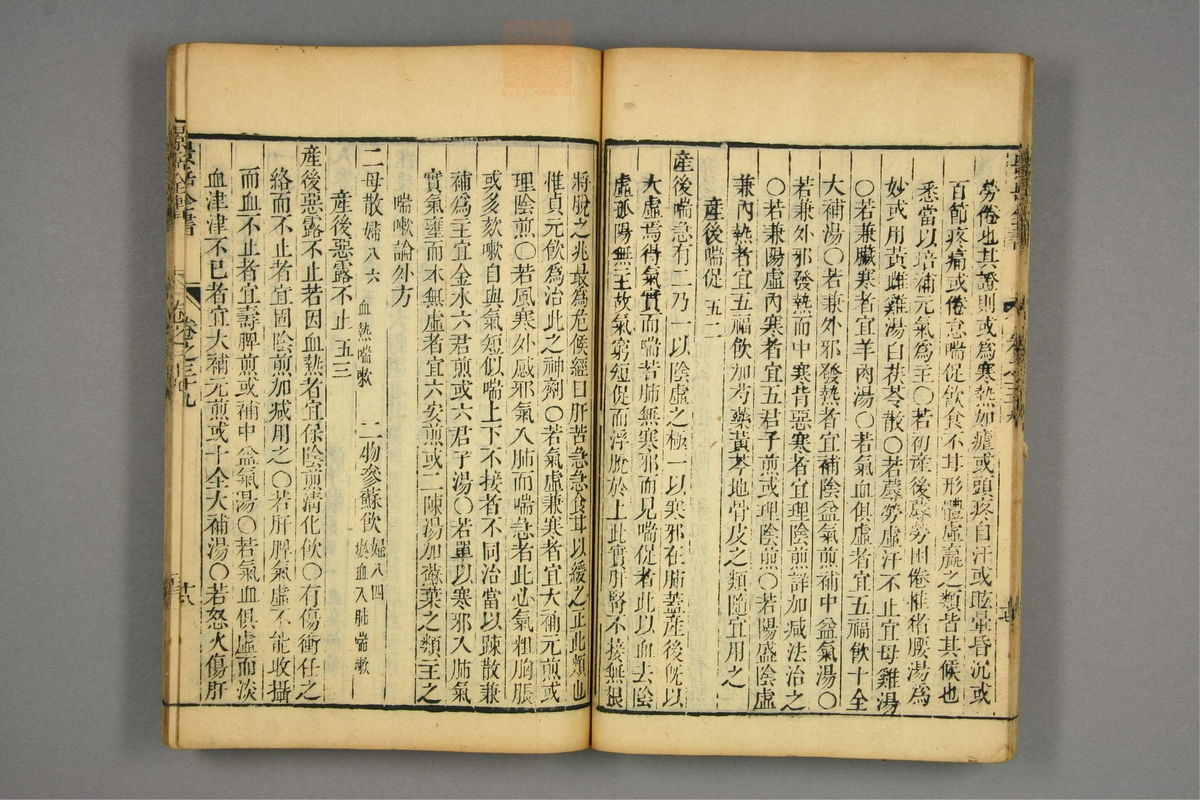 勞倦也其證則或爲寒熱如瘧或頭疼自汗或眩暈昏沉或
百節疼痛或倦怠喘促飲食不甘形體虛羸之類皆其候也
悉當以培補元氣爲主〇若初產後蓐勞困倦惟豬腰湯爲
妙或用黃雌雞湯白茯苓散〇若蓐勞虛汗不止宜母雞湯
〇若兼臟寒者宜羊肉湯〇若氣血俱虛者宜五福飲十全
大補湯〇若兼外邪發熱者宜補陰益氣煎補中益氣湯〇
若兼外邪發熱而中寒背惡寒者宜理陰煎詳加减法治之
〇若兼陽虛內寒者宜五君子煎或理陰煎〇若陽盛陰虛
兼內熱者宜五福飲加芍藥黃芩地骨皮之類隨宜用之
產後喘促 五二
產後喘急有二乃一以陰虛之極一以寒邪在肺蓋產後旣以
大虛焉得氣實而喘若肺無寒邪而見喘促者此以血去陰
虛孤陽無主故氣窮短促而浮脫於上此實肝腎不接無根
將脫之兆最爲危候經曰肝苦急急食甘以緩之正此類也
惟貞元飲爲治此之神劑〇若氣虛兼寒者宜大補元煎或
理陰煎〇若風寒外感邪氣入肺而喘急者此必氣粗胸脹
或多欬嗽自與氣短似喘上下不接者不同治當以踈散兼
補爲主宜金水六君煎或六君子湯〇若單以寒邪入肺氣
實氣壅而本無虛者宜六安煎或二陳湯加蘇葉之類主之
喘嗽論外方
二母散婦八六 血熱喘嗽 二物參蘇飲婦八四 瘀血入肺喘嗽
產後惡露不止 五三
產後惡露不止若因血熱者宜保陰煎清化飲〇有傷衝任之
絡而不止者宜固陰煎加减用之〇若肝脾氣虛不能收攝
而血不止者宜壽脾煎或補中益氣湯〇若氣血俱虛而淡
血津津不已者宜大補元煎或十全大補湯〇若怒火傷肝
景岳全書
卷之三十九
廿八